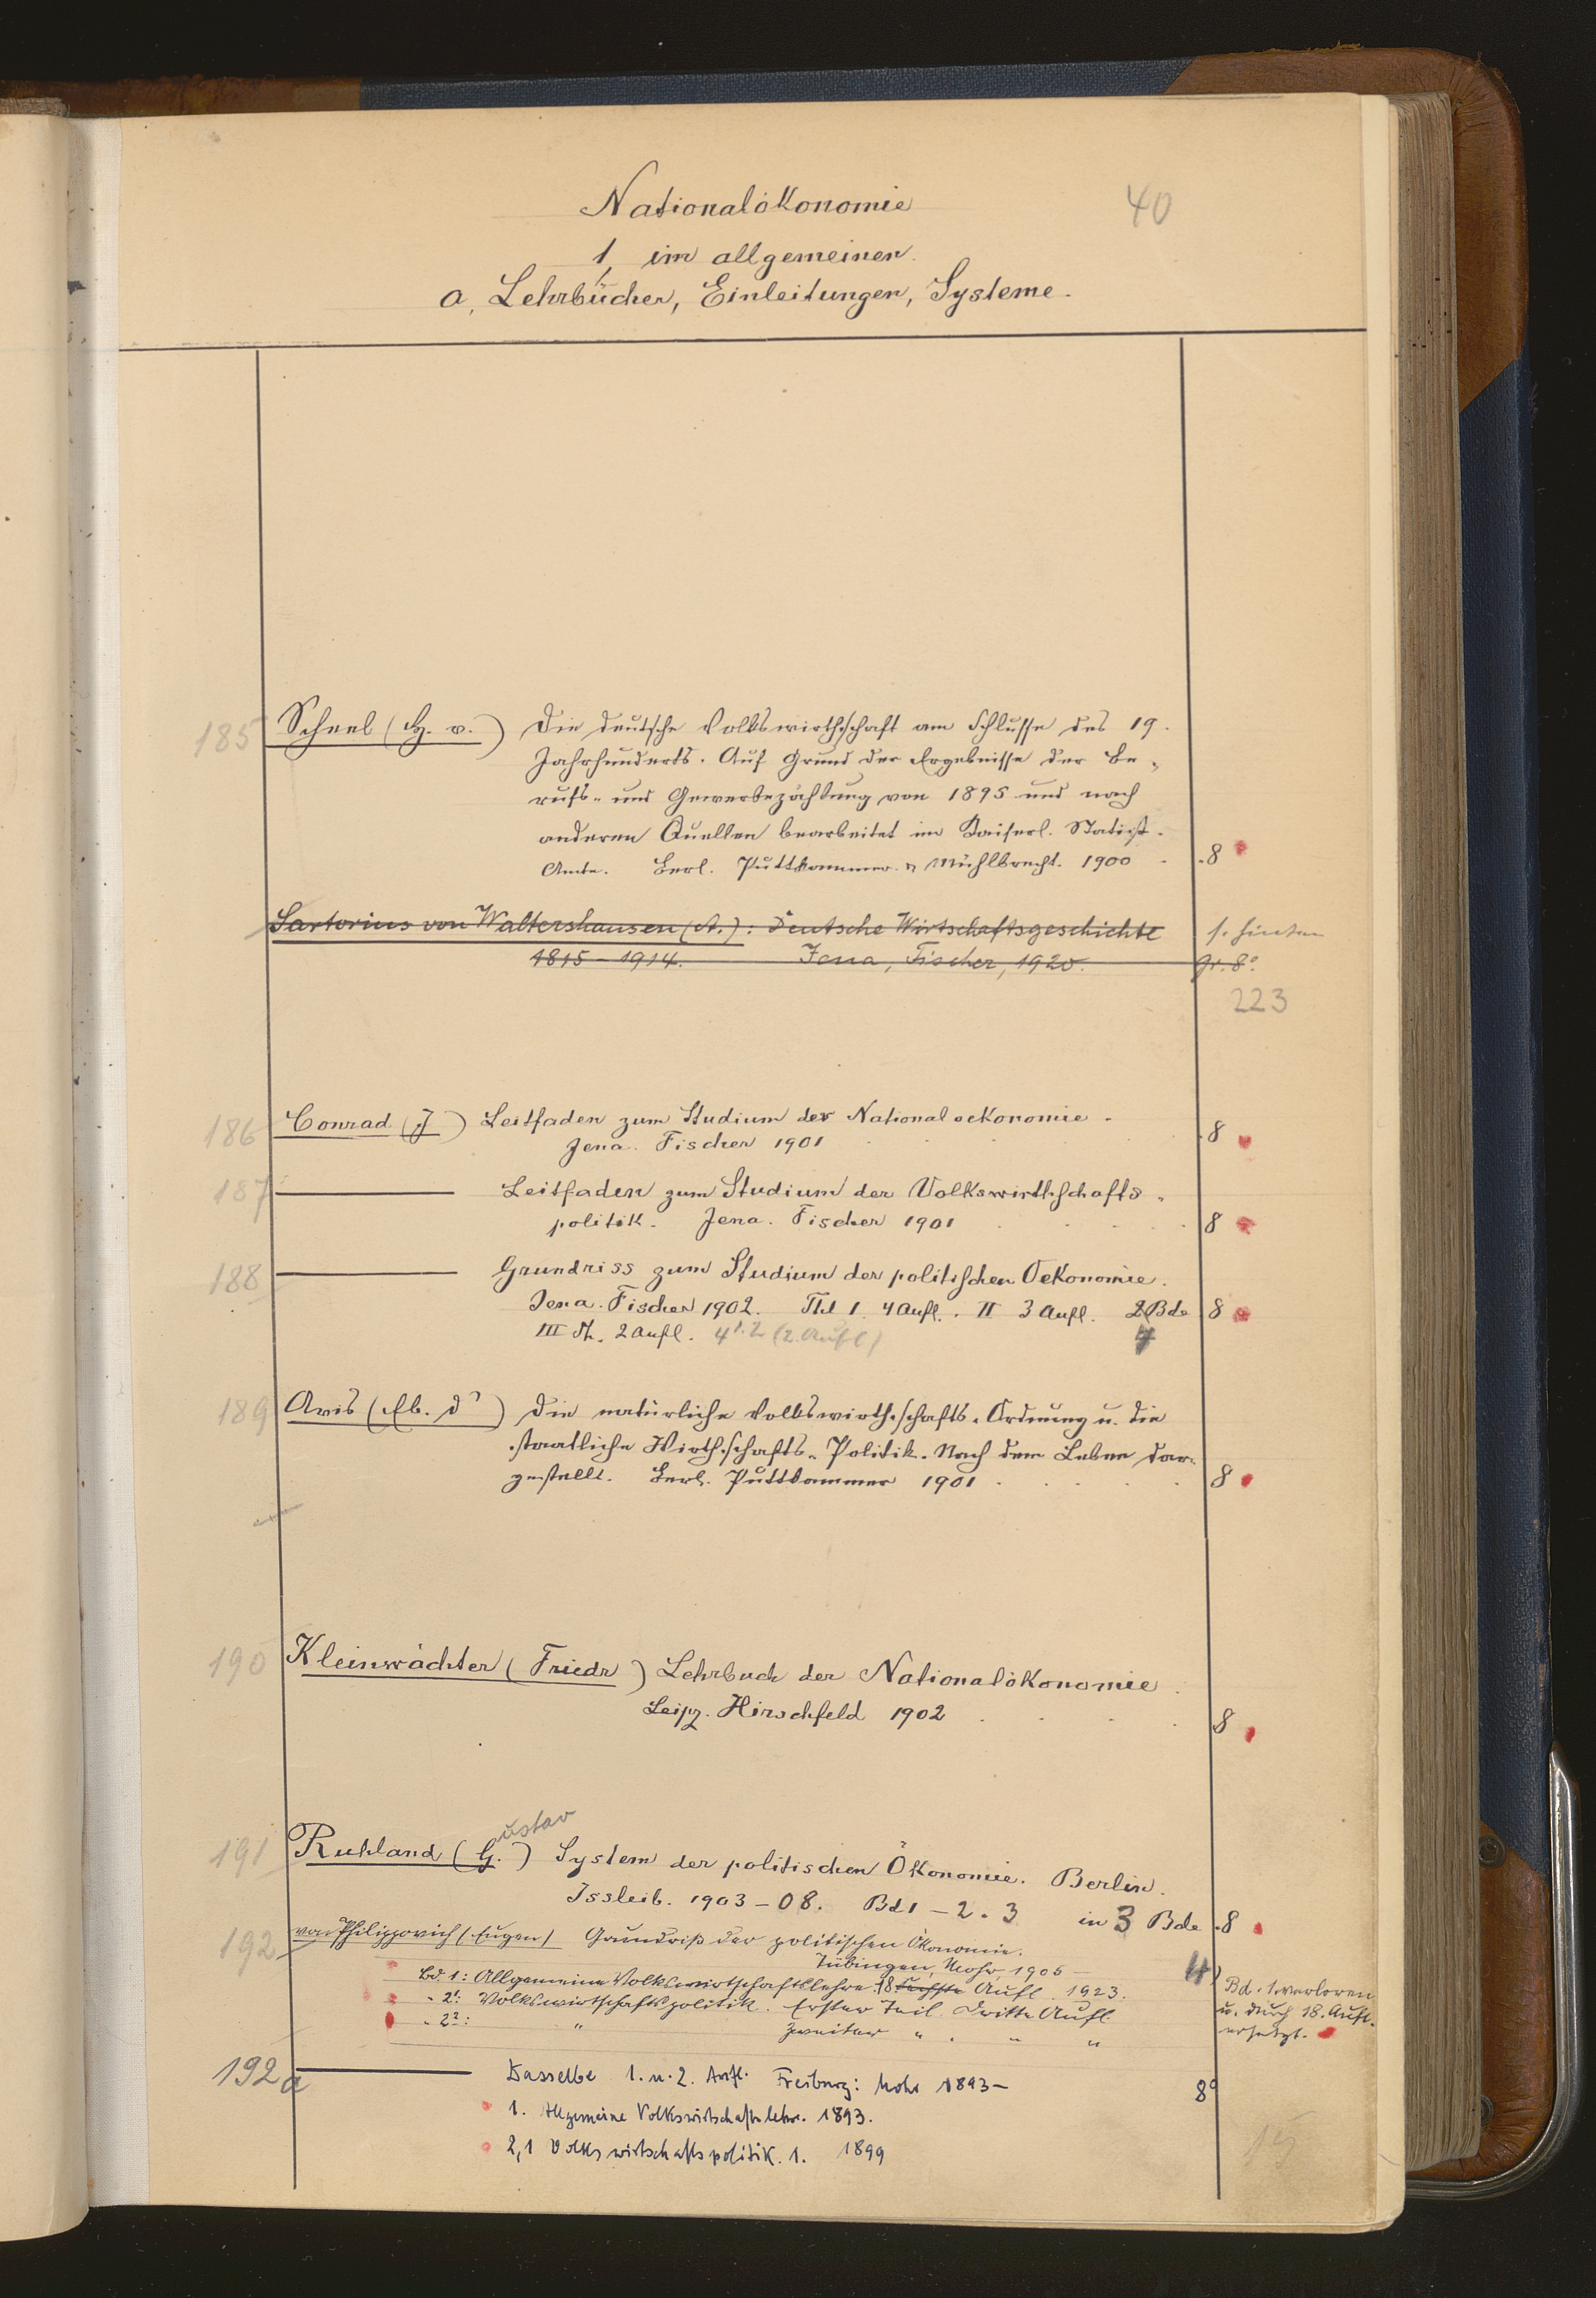 Nationalökonomie
40
1, im allgemeinen.
a, Lehrbücher, Einleitungen, Systeme.
185 Scheel (H. v.) Die deutsche Volkswirthschaft am Schlusse des 19.
Jahrhunderts. Auf Grund der Ergebnisse der Be-
rufs- und Gewerbezählung von 1895 und nach
anderen Quellen bearbeitet im Kaiserl. Statist.
Amte. Berl. Puttkammer & Mühlbrecht. 1900 8
Sartorius von Waltershausen (A.): Deutsche Wirtschaftsgeschichte s. hinten
1815-1914. Jena, Fischer, 1920. gr. 8°.
223
186 Conrad (J) Leitfaden zum Studium der Nationaloekonomie.
Jena. Fischer 1901 8
187 Leitfaden zum Studium der Volkswirthschafts-
politik. Jena. Fischer 1901 8
188 Grundriss zum Studium der politischen Oekonomie.
Jena. Fischer 1902. Thl 1. 4 Aufl. II 3 Aufl. 2 Bde 8
III Th. 2 Aufl. 4 1.2 (2. Aufl) 4
189 Avis (Eb. d') Die natürliche Volkswirthschafts-Ordnung u. die
staatliche Wirthschafts-Politik. Nach dem Leben dar-
gestellt. Berl. Puttkammer 1901 8
190 Kleinwächter (Friedr) Lehrbuch der Nationalökonomie
Leipz. Hirschfeld 1902 8
ustav
191 Ruhland (G.) System der politischen Ökonomie. Berlin.
Issleib. 1903-08. Bd 1-2.3 in 3 Bde 8
192 von Philippovich (Eugen) Grundriß der politischen Ökonomie.
Tübingen, Mohr, 1905-
Bd. 1: Allgemeine Volkswirtschaftslehre. 18 sechste Aufl. 1923. Bd. 1 verloren
" 2¹: Volkswirtschaftspolitik. Erster Teil. Dritte Aufl. u. durch 18. Aufl.
" 2²: " Zweiter " " " ersetzt.
192a Dasselbe 1. u. 2. Aufl. Freiburg: Mohr 1893- 8°
1. Allgemeine Volkswirtschaftslehre. 1893.
2,1 Volkswirtschaftspolitik. 1. 1899